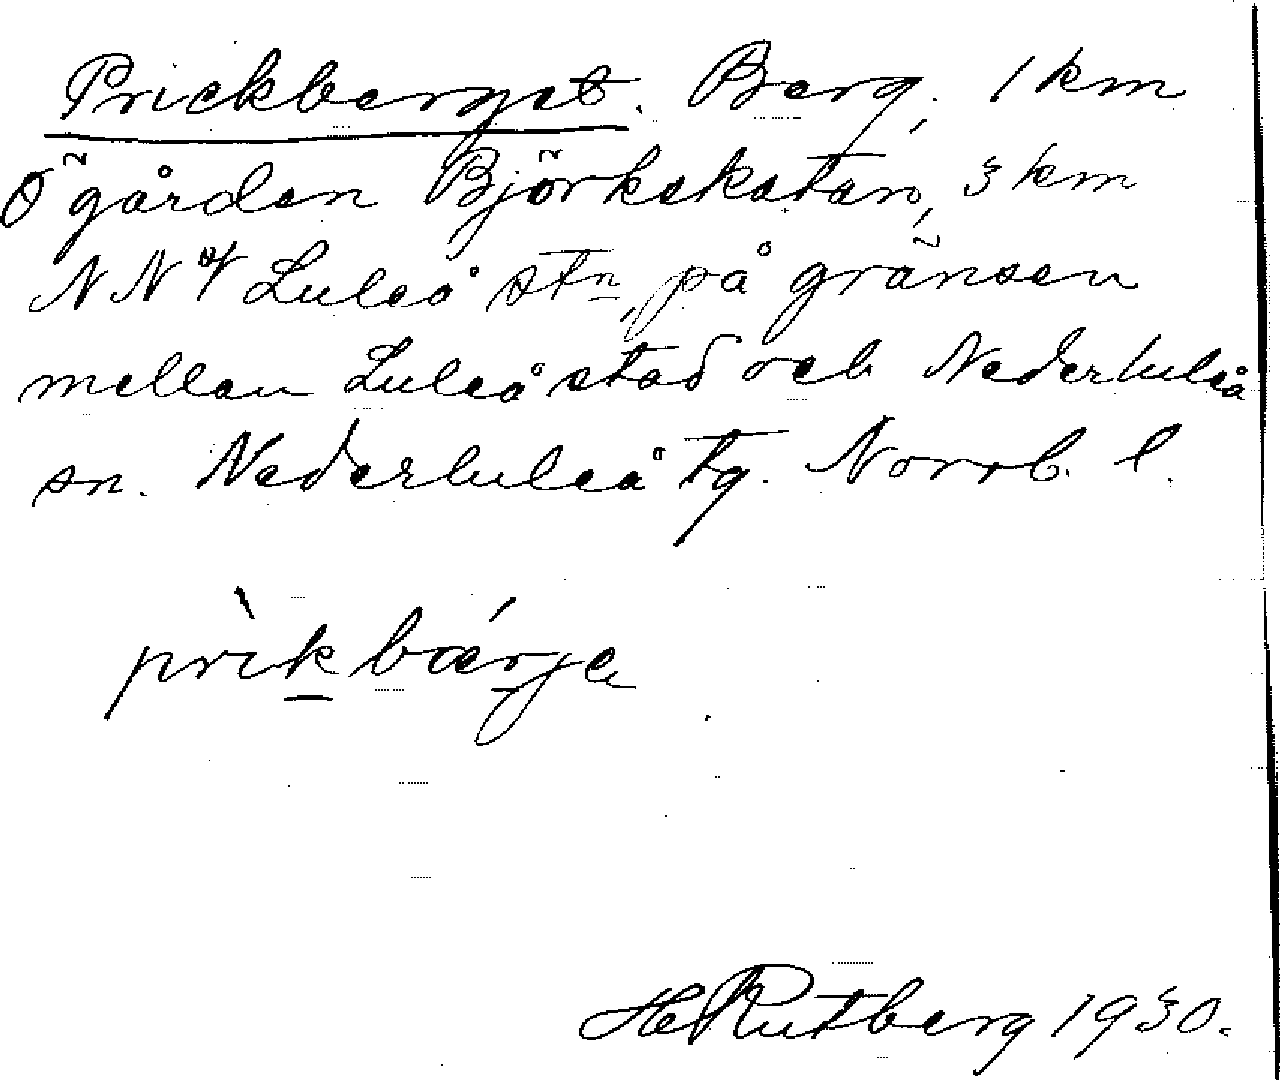 Prickberget. Berg, 1 km
Ö gården Björkskatan, 3 km
NNV Luleå stn, på gränsen
mellan Luleå stad och Nederluleå
sn. Nederluleå tg. Norrb. l.
prìkbǽrje
H Rutberg 1930.